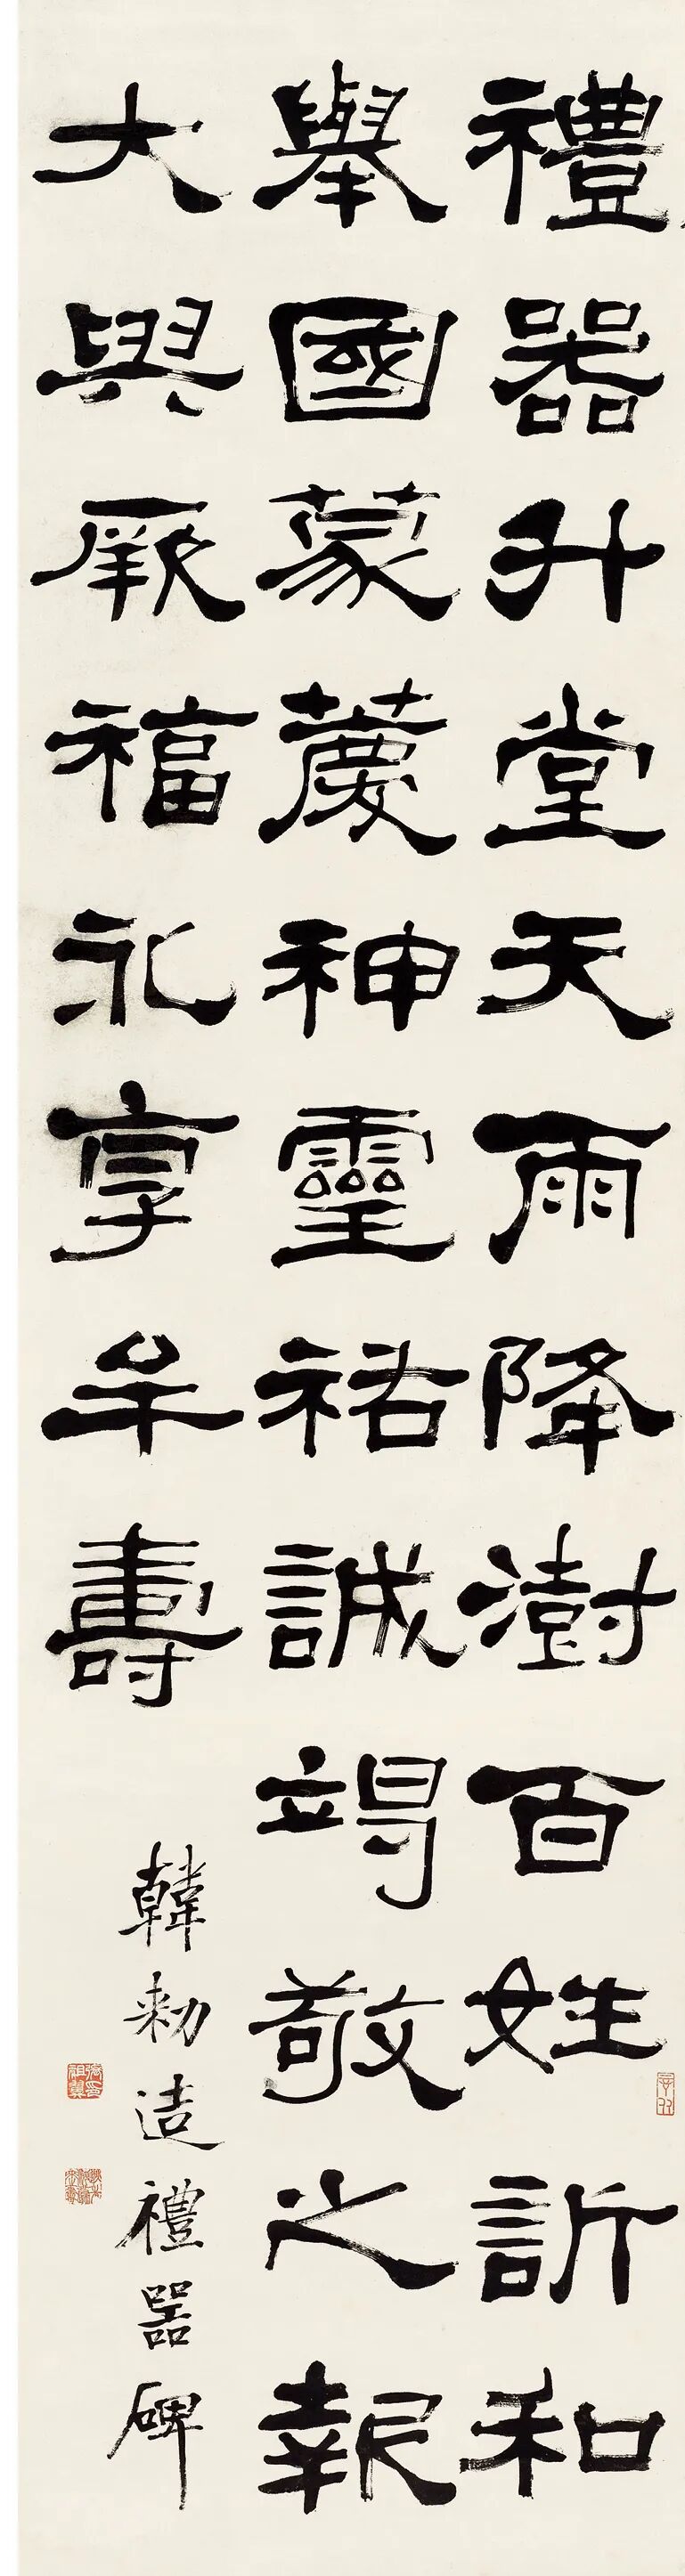 禮器升堂天雨降澍百姓訢和
舉國蒙慶神靈祐誠竭敬之報
大與厥福永享牟壽
韓勑造禮器碑